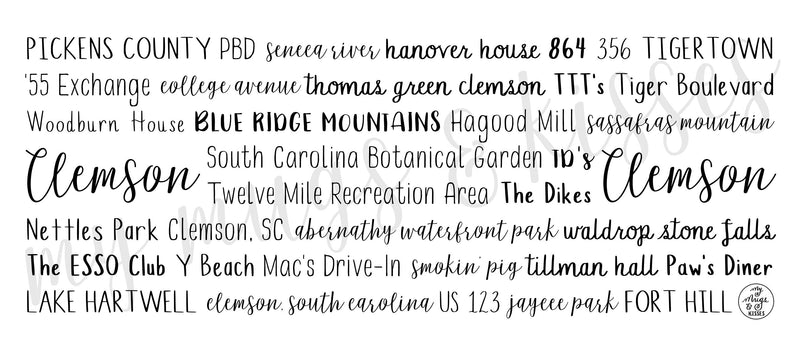 PICKENS COUNTY PBD seneca river hanover house 864 356 TIGERTOWN
'55 Exchange college avenue thomas green clemson TTT's Tiger Boulevard
Woodburn House BLUE RIDGE MOUNTAINS Hagood Mill sassafras mountain
Clemson South Carolina Botanical Garden TD's Clemson
Twelve Mile Recreation Area The Dikes
Nettles Park Clemson, SC abernathy waterfront park waldrop stone falls
The ESSO Club Y Beach Mac's Drive-In smokin' pig tillman hall Paw's Diner
LAKE HARTWELL clemson. south carolina US 123 jaycee park FORT HILL
my Mugs & KISSES
my mugs & kisses